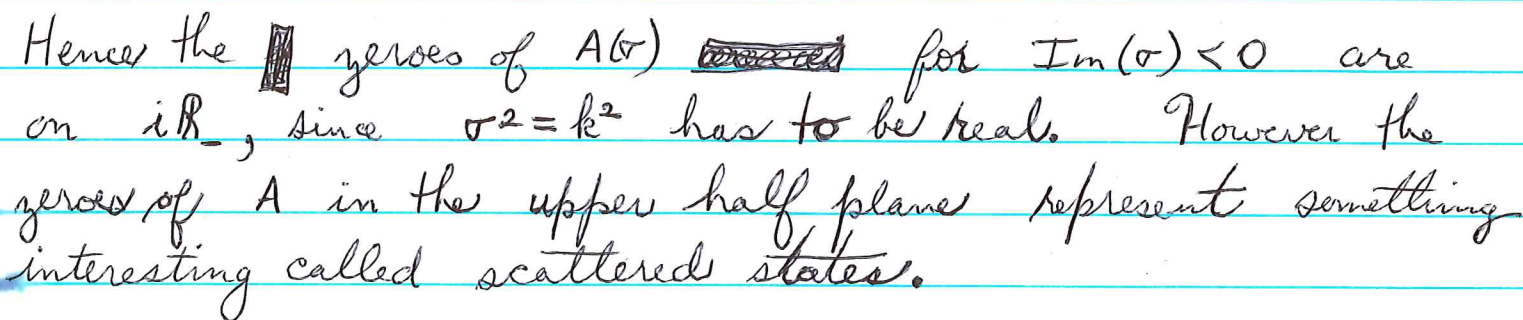 Hence the zeroes of A(σ) for Im(σ) < 0 are
on iℝ_, since σ² = k² has to be real. However the
zeroes of A in the upper half plane represent something
interesting called scattered states.